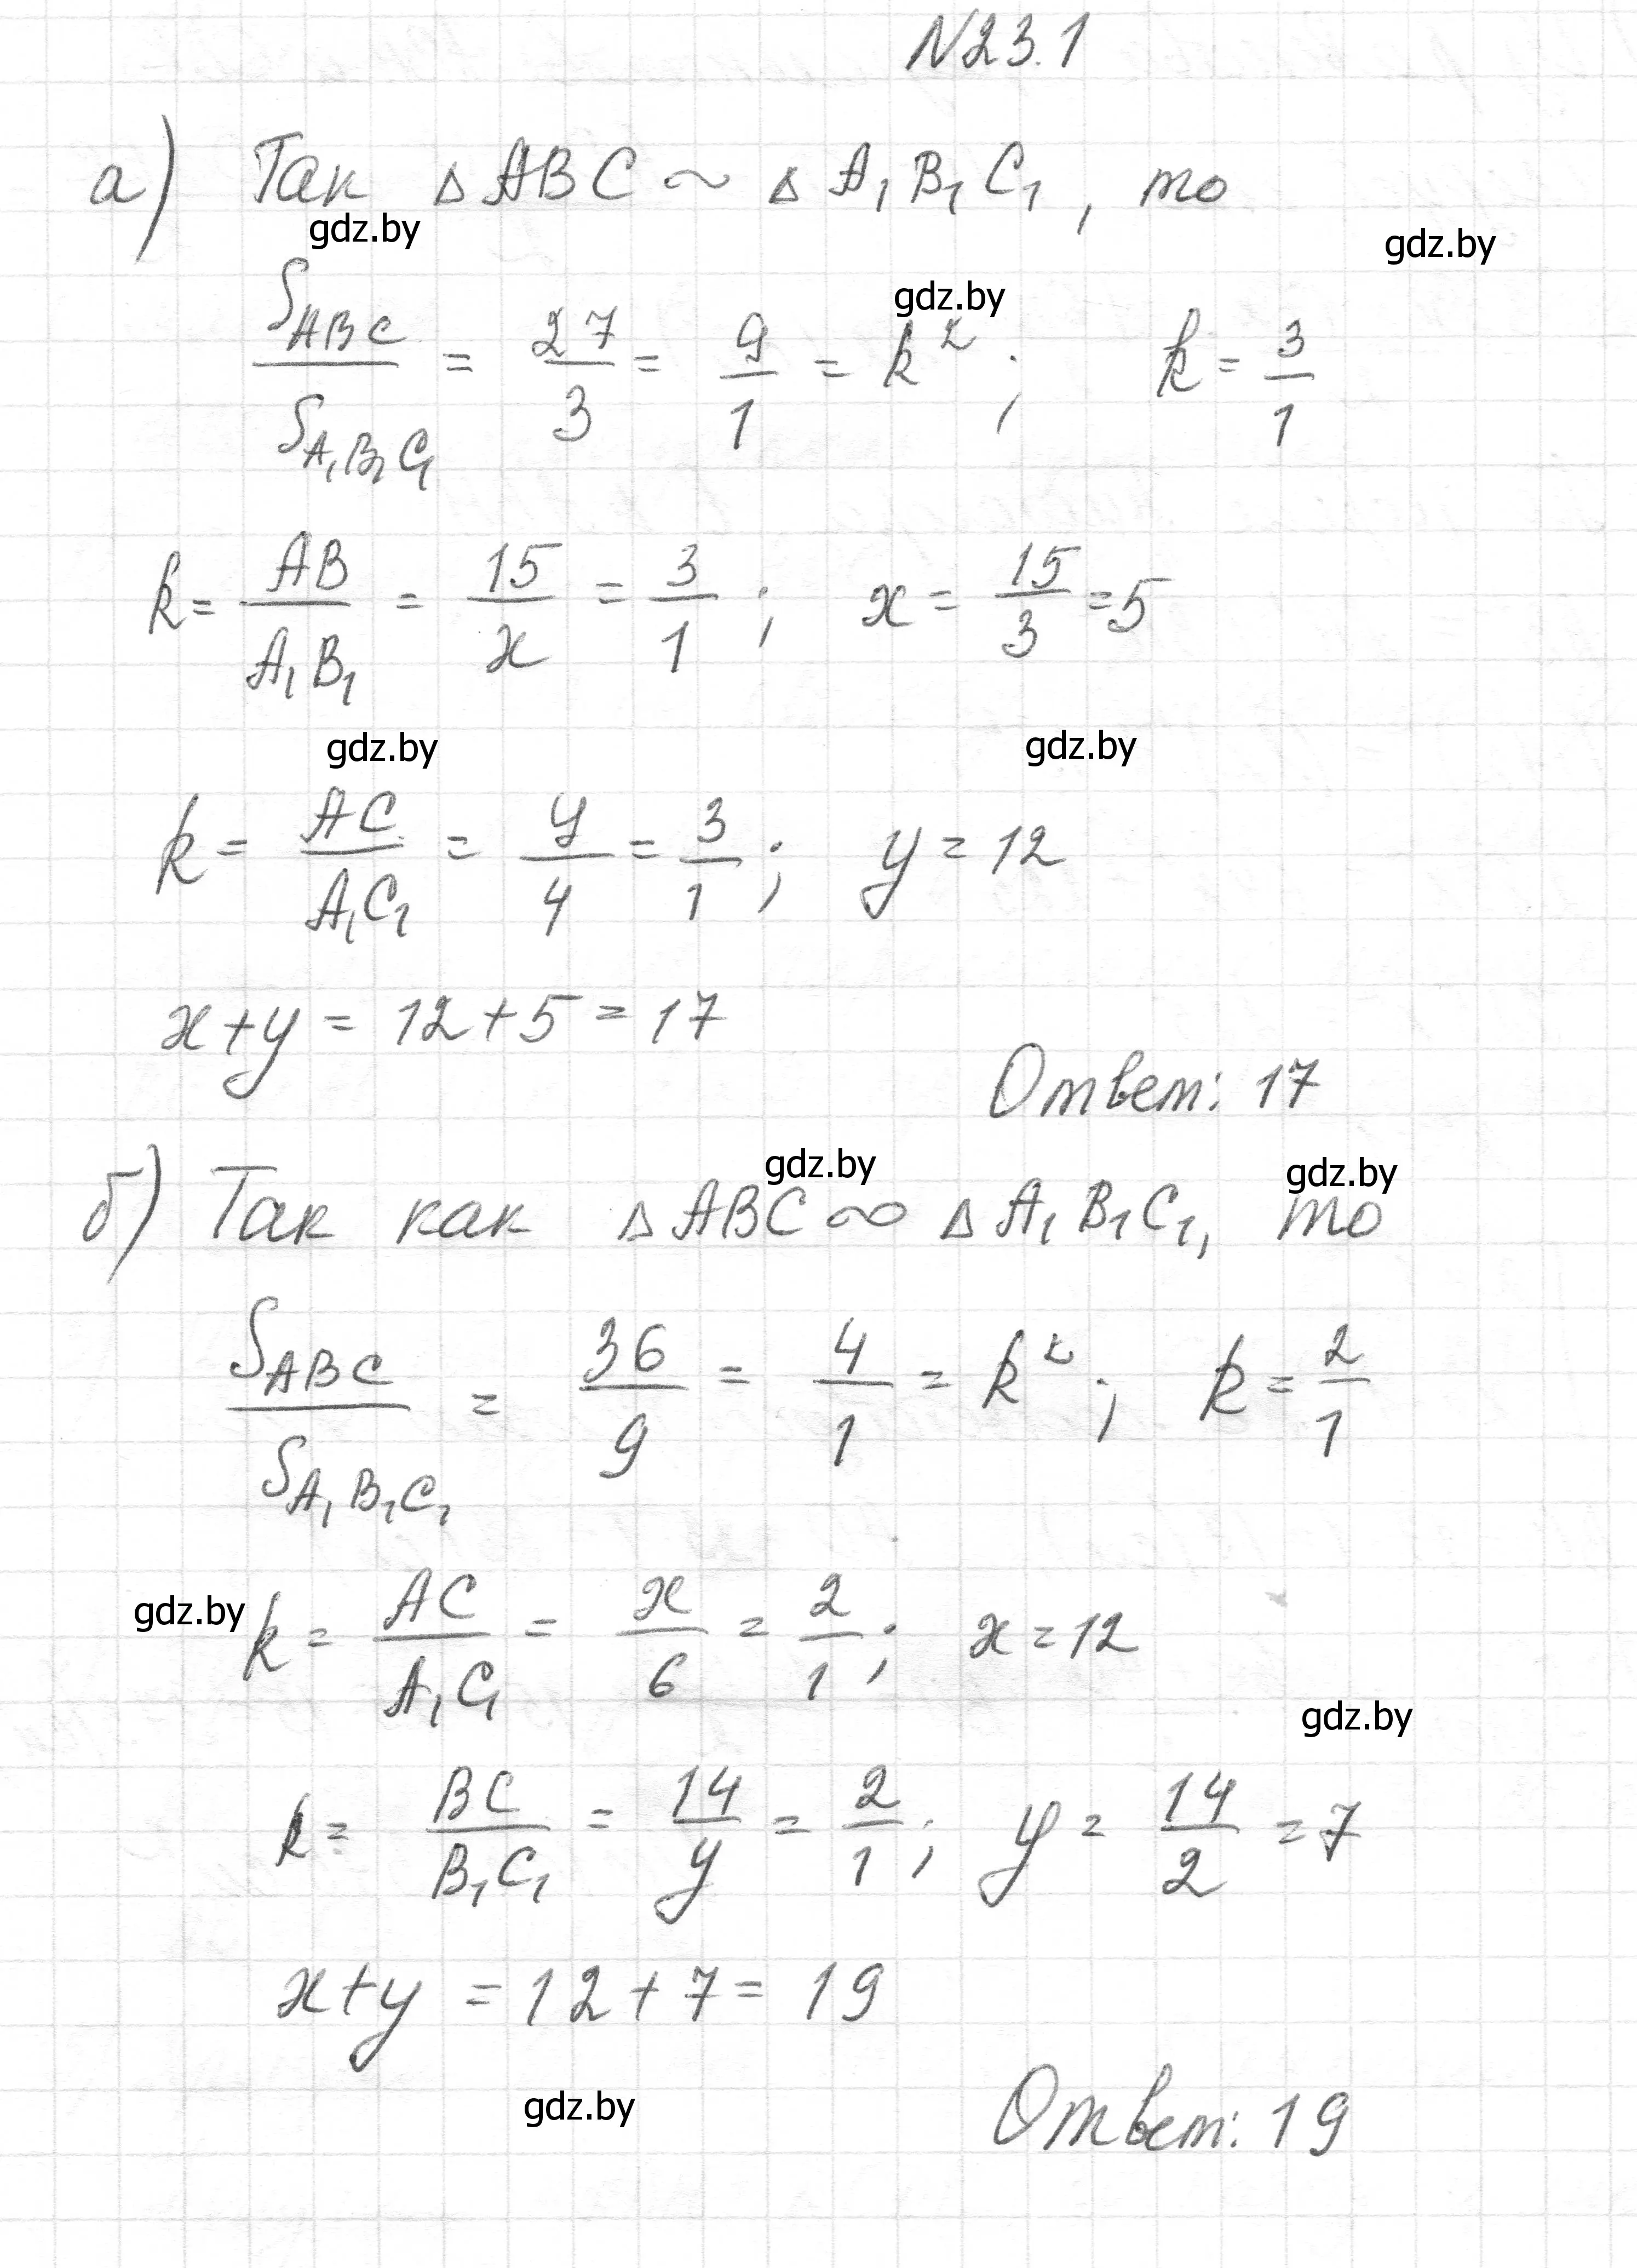 N23.1
а) Так △ABC ~ △A₁B₁C₁, то
gdz.by
gdz.by
gdz.by
S_ABC / S_A₁B₁C₁ = 27/3 = 9/1 = k²; k = 3/1
k = AB/A₁B₁ = 15/x = 3/1; x = 15/3 = 5
gdz.by
gdz.by
k = AC/A₁C₁ = y/4 = 3/1; y = 12
x+y = 12+5 = 17
Ответ: 17
gdz.by
gdz.by
б) Так как △ABC ∞ △A₁B₁C₁, то
S_ABC / S_A₁B₁C₁ = 36/9 = 4/1 = k²; k = 2/1
gdz.by
k = AC/A₁C₁ = x/6 = 2/1; x = 12
gdz.by
k = BC/B₁C₁ = 14/y = 2/1; y = 14/2 = 7
x+y = 12+7 = 19
gdz.by
Ответ: 19